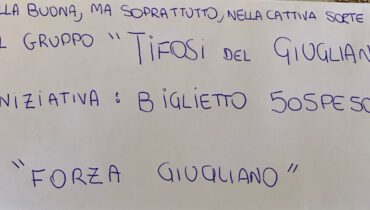 LLA BUONA, MA SOPRATTUTTO, NELLA CATTIVA SORTE
L GRUPPO "TIFOSI DEL GIUGLIAN
NIZIATIVA : BIGLIETTO SOSPESO
"FORZA GIUGLIANO"